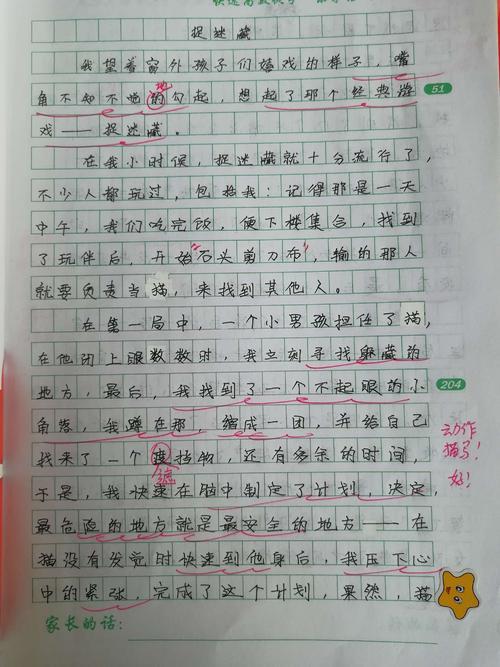 捉迷藏
我望着窗外孩子们嬉戏的样子，嘴
角不知不觉的勾起，想起了那个经典游
地
51
戏——捉迷藏。
在我小时候，捉迷藏就十分流行了，
不少人都玩过，包括我：记得那是一天
中午，我们吃完饭，便下楼集合，找到
了玩伴后，开始"石头剪刀布"，输的那人
就要负责当猫，来找到其他人。
在第一局中，一个小男孩担任了猫，
在他闭上眼数数时，我立刻寻找躲藏的
地方，最后，我找到了一个不起眼的小
204
角落，我蹲在那，缩成一团，并给自己
动作
描写！
好！
找来了一个遮挡物，还有多余的时间，
于是，我快速在脑中制定了计划，决定，
最危险的地方就是最安全的地方——在
猫没有发觉时快速到他身后，我压下心
中的紧张，完成了这个计划，果然，猫
家长的话：